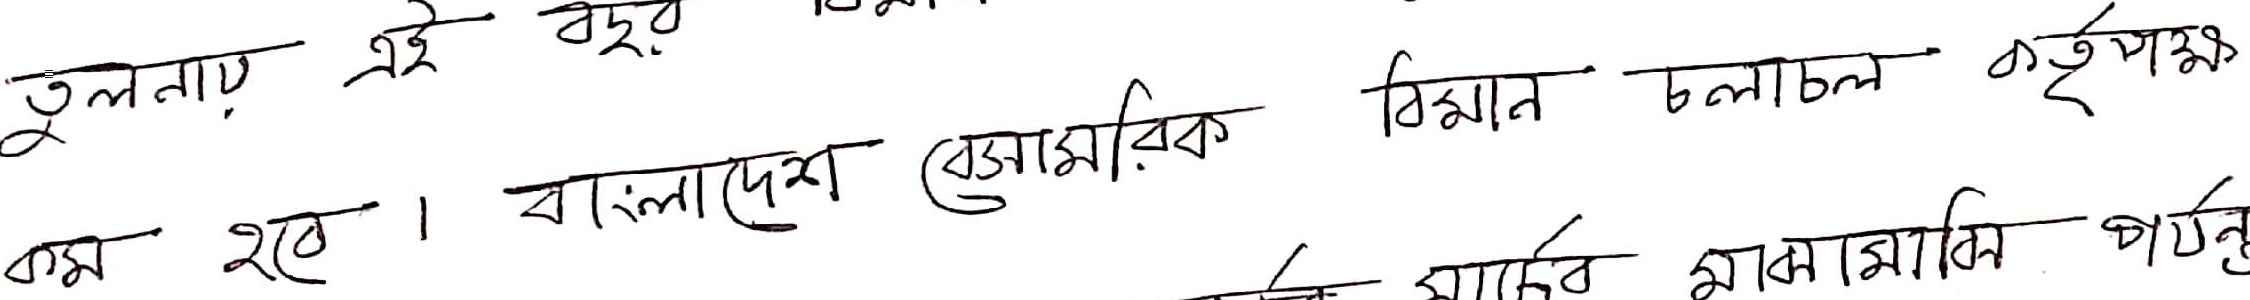 তুলনায় এই বছর
কম হবে। বাংলাদেশ বেসামরিক বিমান চলাচল কর্তৃপক্ষ
মার্চের মাঝামাঝি পর্যন্ত